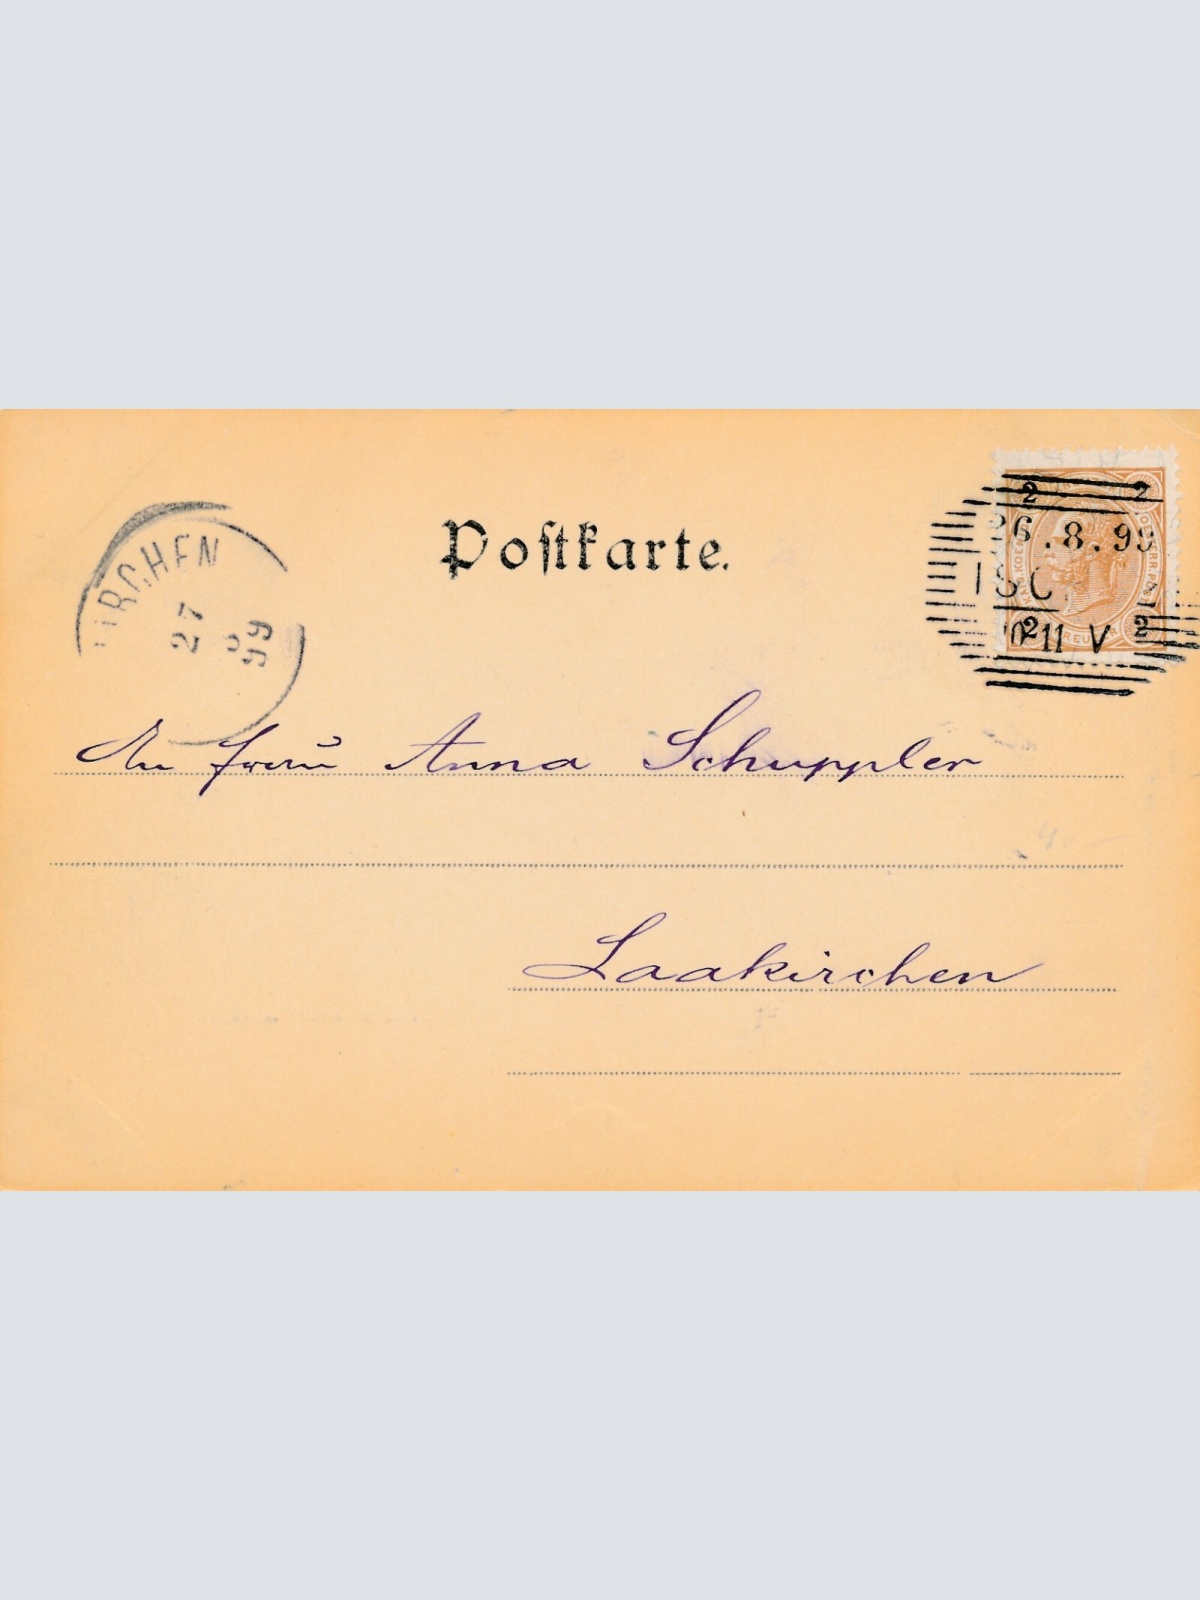 Postkarte.
26.8.99
ISC
10-11 V
2 2
2 2
KIRCHEN
27
8
99
An Frau Anna Schuppler
Laakirchen